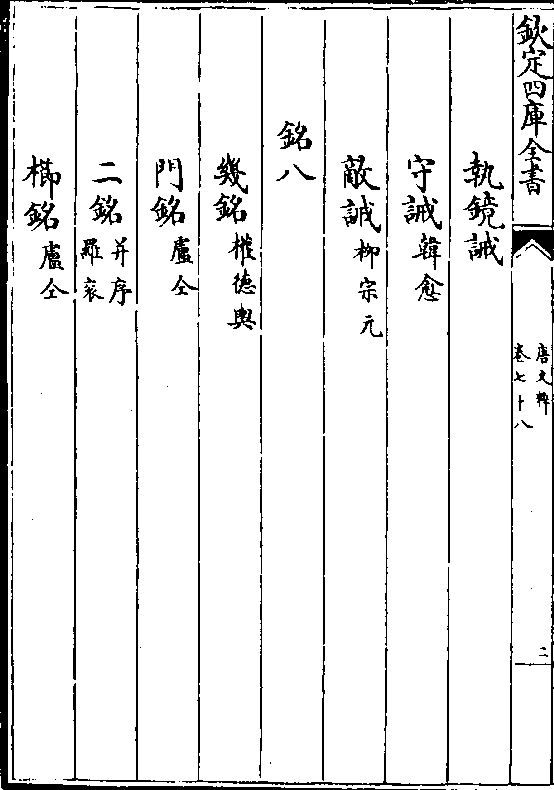 欽定四庫全書
唐文粹
卷七十八
二
執鏡誡
守誡 韓愈
敵誡 柳宗元
銘八
幾銘 權德輿
門銘 盧仝
二銘 并序 羅衮
櫛銘 盧仝